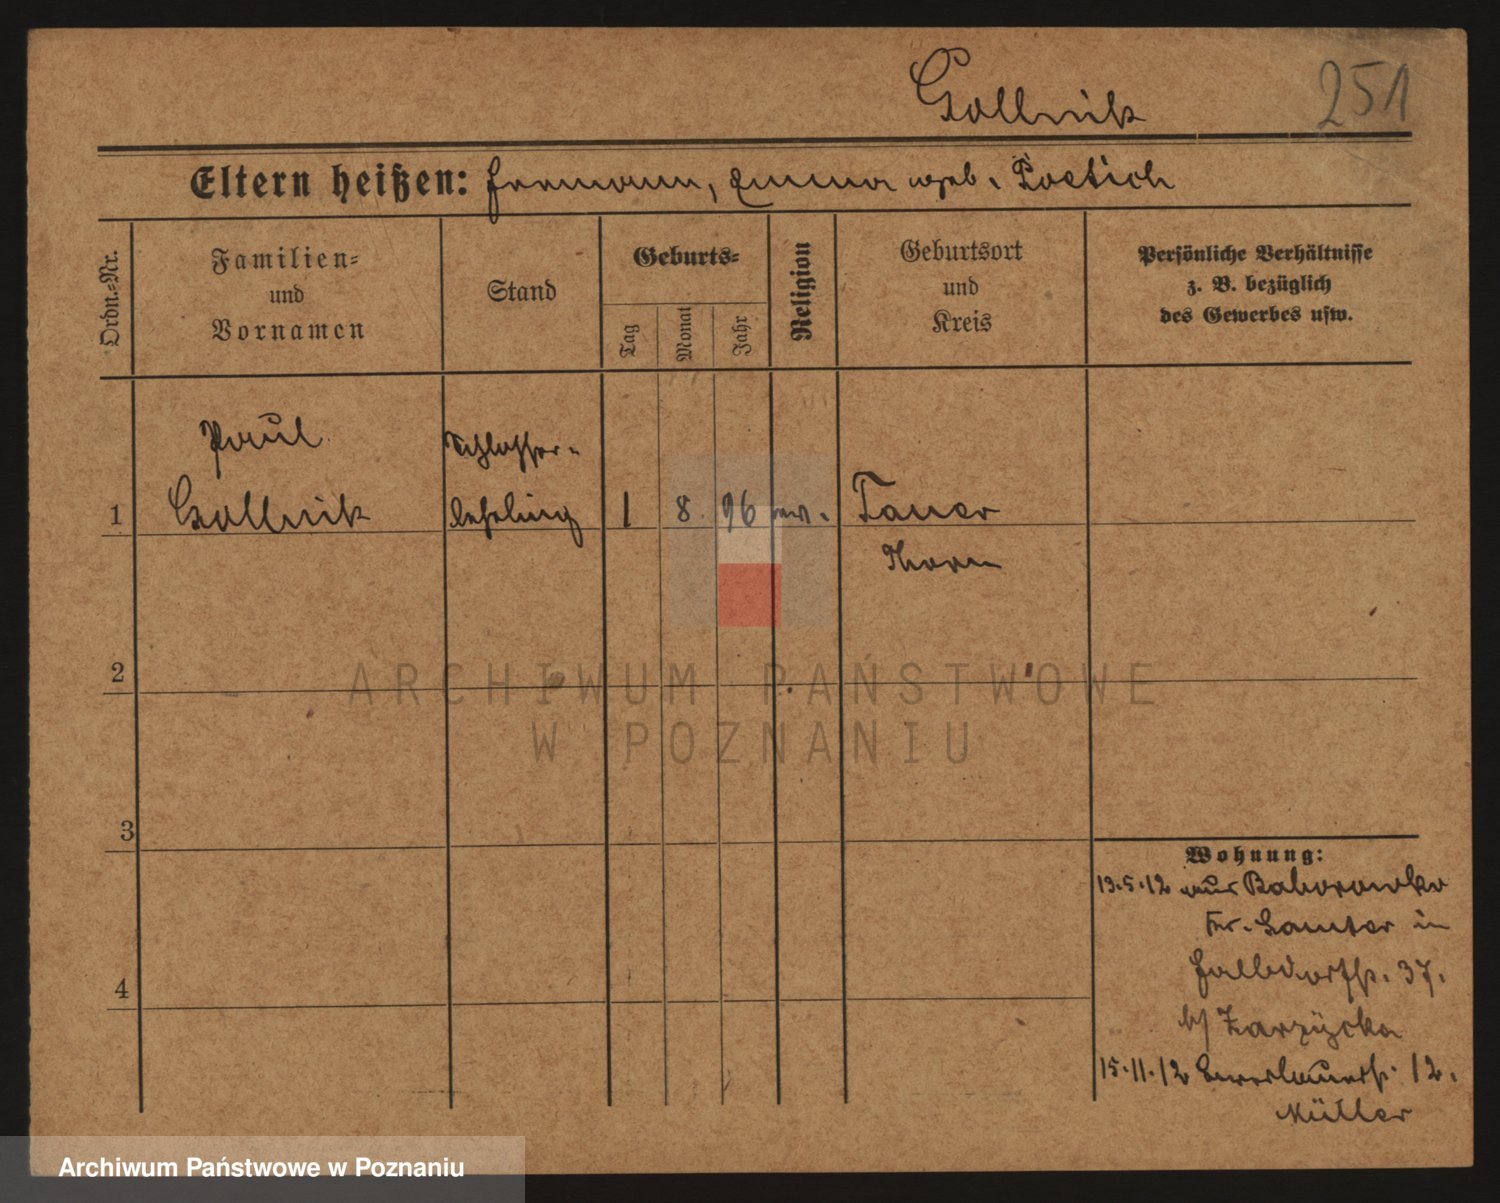 Gollnik
251
Eltern heißen: Hermann, Emma geb. Poetsch
Ordn.-Nr.
Familien-
und
Vornamen
Stand
Geburts-
Tag
Monat
Jahr
Religion
Geburtsort
und
Kreis
Persönliche Verhältnisse
z. B. bezüglich
des Gewerbes usw.
Paul
Schlosser-
1 Gollnik lehrling 1 8. 96 ev. Tauer
Thorn
2
ARCHIWUM PAŃSTWOWE
W POZNANIU
3
Wohnung:
13.5.12 aus Baborowko
Kr. Samter in
Halbdorfstr. 37.
b/ Zarzycka
4
15.11.12 12.
Müller
Archiwum Państwowe w Poznaniu